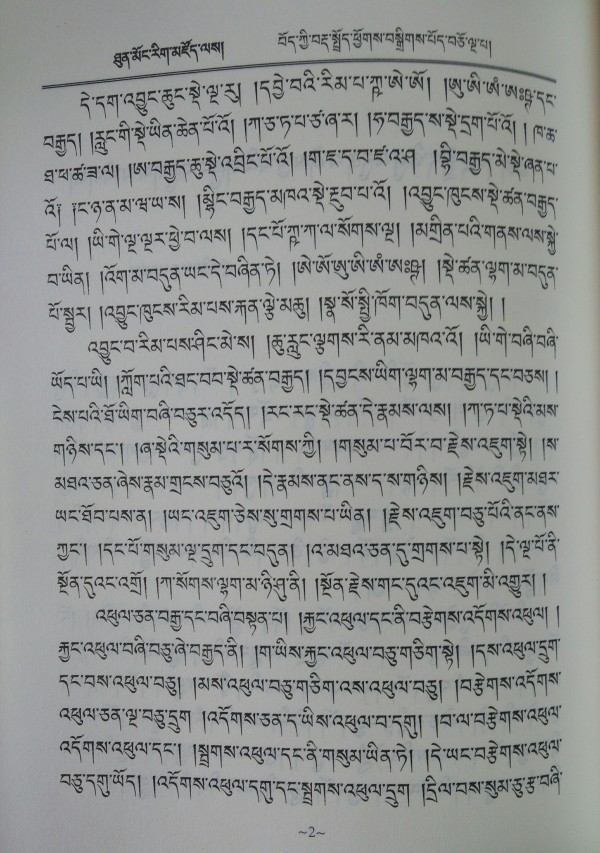 ཐུན་མོང་རིག་མཛོད་ལས། བོད་ཀྱི་བརྡ་སྤྲོད་ཕྱོགས་བསྒྲིགས་པོད་བཅོ་ལྔ་པ།
དེ་དག་འབྱུང་ཆུང་སྡེ་ལྔ་རུ། །དབྱེ་བའི་རིམ་པ་ཀླཱ་ཨེ་ཨོ། །ཨུ་ཨི་ཨཾ་ཨཿ དང་
བརྒྱད། །རླུང་གི་སྡེ་ཡིན་ཆེན་པོ་འོ། །ཀ་ཅ་ཏ་པ་ཙ་ཞ་ར། །ཧ་བརྒྱད་ས་སྡེ་དྲག་པོ་འོ། །ཁ་ཆ་
ཐ་ཕ་ཚ་ཟ་ལ། །ཨ་བརྒྱད་ཆུ་སྡེ་འབྲིང་པོ་འོ། །ག་ཇ་ད་བ་ཛ་འ་ཤ །ཧྰི་བརྒྱད་མེ་སྡེ་ཞན་པ་
འོ། །ང་ཉ་ན་མ་ཝ་ཡ་ས། །ཧྨིང་བརྒྱད་མཁའ་སྡེ་རྔུབ་པ་འོ། །འབྱུང་ཁུངས་སྡེ་ཚན་བརྒྱད་
པོ་ལ། །ཡི་གེ་ལྔ་ལྔར་ཕྱེ་བ་ལས། །དང་པོ་ཀླཱ་ཀ་ལ་སོགས་ལྔ། །མགྲིན་པའི་གནས་ལས་སྐྱེ་
བ་ཡིན། །འོག་མ་བདུན་ཡང་དེ་བཞིན་ཏེ། །ཨེ་ཨོ་ཨུ་ཨི་ཨཾ་ཨཿ །སྡེ་ཚན་ལྷག་མ་བདུན་
པོ་སྦྱར། །འབྱུང་ཁུངས་རིམ་པས་རྐན་ལྕེ་མཆུ། །སྣ་སོ་སྤྱི་ཁོག་བདུན་ལས་སྐྱེ། །
འབྱུང་བ་རིམ་པས་ཤིང་མེ་ས། །ཆུ་རླུང་ལྕགས་རི་ནམ་མཁའ་འོ། །ཡི་གེ་བཞི་བཞི་
ཡོད་པ་ཡི། །ཀློག་པའི་ཐང་བབ་སྡེ་ཚན་བརྒྱད། །དབྱངས་ཡིག་ལྷག་མ་བརྒྱད་དང་བཅས། །
ངེས་པའི་ཐོ་ཡིག་བཞི་བཅུར་འདོད། །རང་རང་སྡེ་ཚན་དེ་རྣམས་ལས། །ཀ་ཏ་པ་སྡེའི་མས་
གཉིས་དང་། །ཞ་སྡེའི་གསུམ་པ་ར་སོགས་ཀྱི། །གསུམ་པ་བོར་བ་རྗེས་འཇུག་སྟེ། །ས་
མཐའ་ཅན་ཞེས་རྣམ་གྲངས་བཅུའོ། །དེ་རྣམས་ནང་ནས་ད་ས་གཉིས། །རྗེས་འཇུག་མཐར་
ཡང་ཐོབ་པས་ན། །ཡང་འཇུག་ཅེས་སུ་གྲགས་པ་ཡིན། །རྗེས་འཇུག་བཅུ་པོའི་ནང་ནས་
ཀྱང་། །དང་པོ་གསུམ་ལྔ་དྲུག་དང་བདུན། །འ་མཐའ་ཅན་དུ་གྲགས་པ་སྟེ། །དེ་ལྔ་པོ་ནི་
སྔོན་དུའང་འགྲོ། །ཀ་སོགས་ལྷག་མ་ཉི་ཤུ་ནི། །སྔོན་རྗེས་གང་དུའང་འཇུག་མི་འགྱུར། །
འཕུལ་ཅན་བརྒྱ་དང་བཞི་བསྟན་པ། །རྐྱང་འཕུལ་དང་ནི་བརྩེགས་འདོགས་འཕུལ། །
རྐྱང་འཕུལ་བཞི་བཅུ་ཞེ་བརྒྱད་ནི། །ག་ཡིས་རྐྱང་འཕུལ་བཅུ་གཅིག་སྟེ། །དས་འཕུལ་དྲུག་
དང་བས་འཕུལ་བཅུ། །མས་འཕུལ་བཅུ་གཅིག་འས་འཕུལ་བཅུ། །བརྩེགས་འདོགས་
འཕུལ་ཅན་ལྔ་བཅུ་དྲུག །འདོགས་ཅན་ད་ཡིས་འཕུལ་བ་དགུ། །བ་ལ་བརྩེགས་འཕུལ་
འདོགས་འཕུལ་དང་། །སྦྲགས་འཕུལ་དང་ནི་གསུམ་ཡིན་ཏེ། །དེ་ཡང་བརྩེགས་འཕུལ་
བཅུ་དགུ་ཡོད། །འདོགས་འཕུལ་དགུ་དང་སྦྲགས་འཕུལ་དྲུག །དྲིལ་བས་སུམ་ཅུ་རྩ་བཞི་
~2~